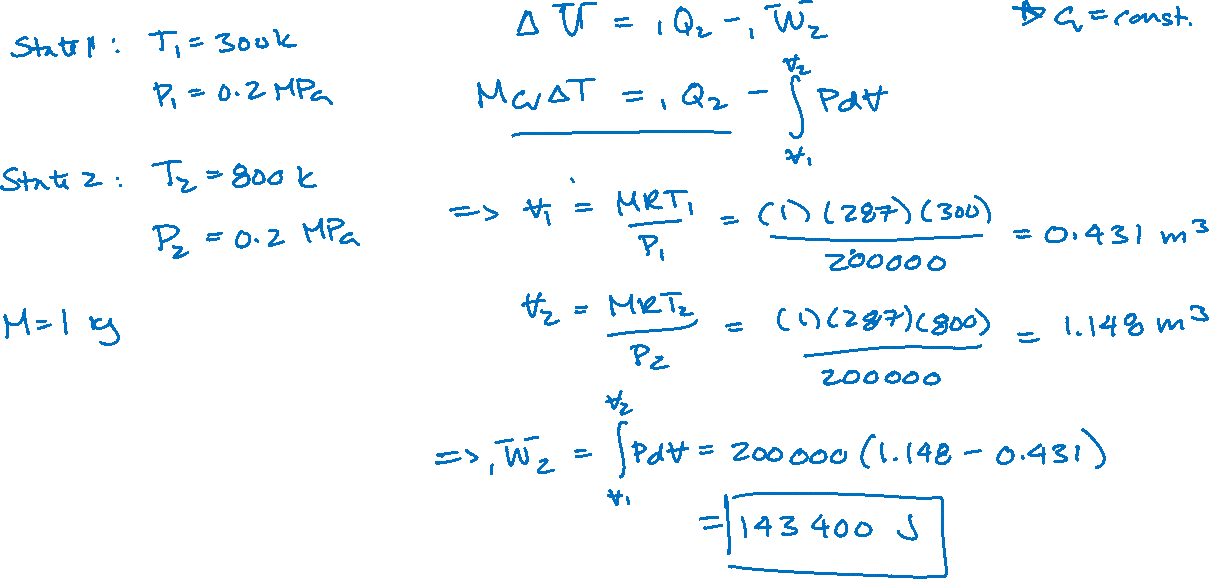 State 1 : T₁ = 300 K
P₁ = 0.2 MPa
State 2 : T₂ = 800 K
P₂ = 0.2 MPa
M = 1 kg
ΔU = ₁Q₂ - ₁W₂
Cᵥ = const.
MCᵥΔT = ₁Q₂ - ∫_{V₁}^{V₂} PdV
=> V₁ = MRT₁ / P₁ = (1)(287)(300) / 200000 = 0.431 m³
V₂ = MRT₂ / P₂ = (1)(287)(800) / 200000 = 1.148 m³
=> ₁W₂ = ∫_{V₁}^{V₂} PdV = 200000 (1.148 - 0.431)
= 143400 J